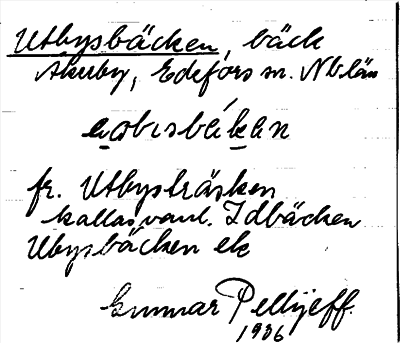 Utbysbäcken, bäck
Åkerby, Edefors sn. Nb län
fr. Utbysträsken
kallas vanl. Idbäcken
Ubysbäcken ek
Gunnar Pellijeff.
1936